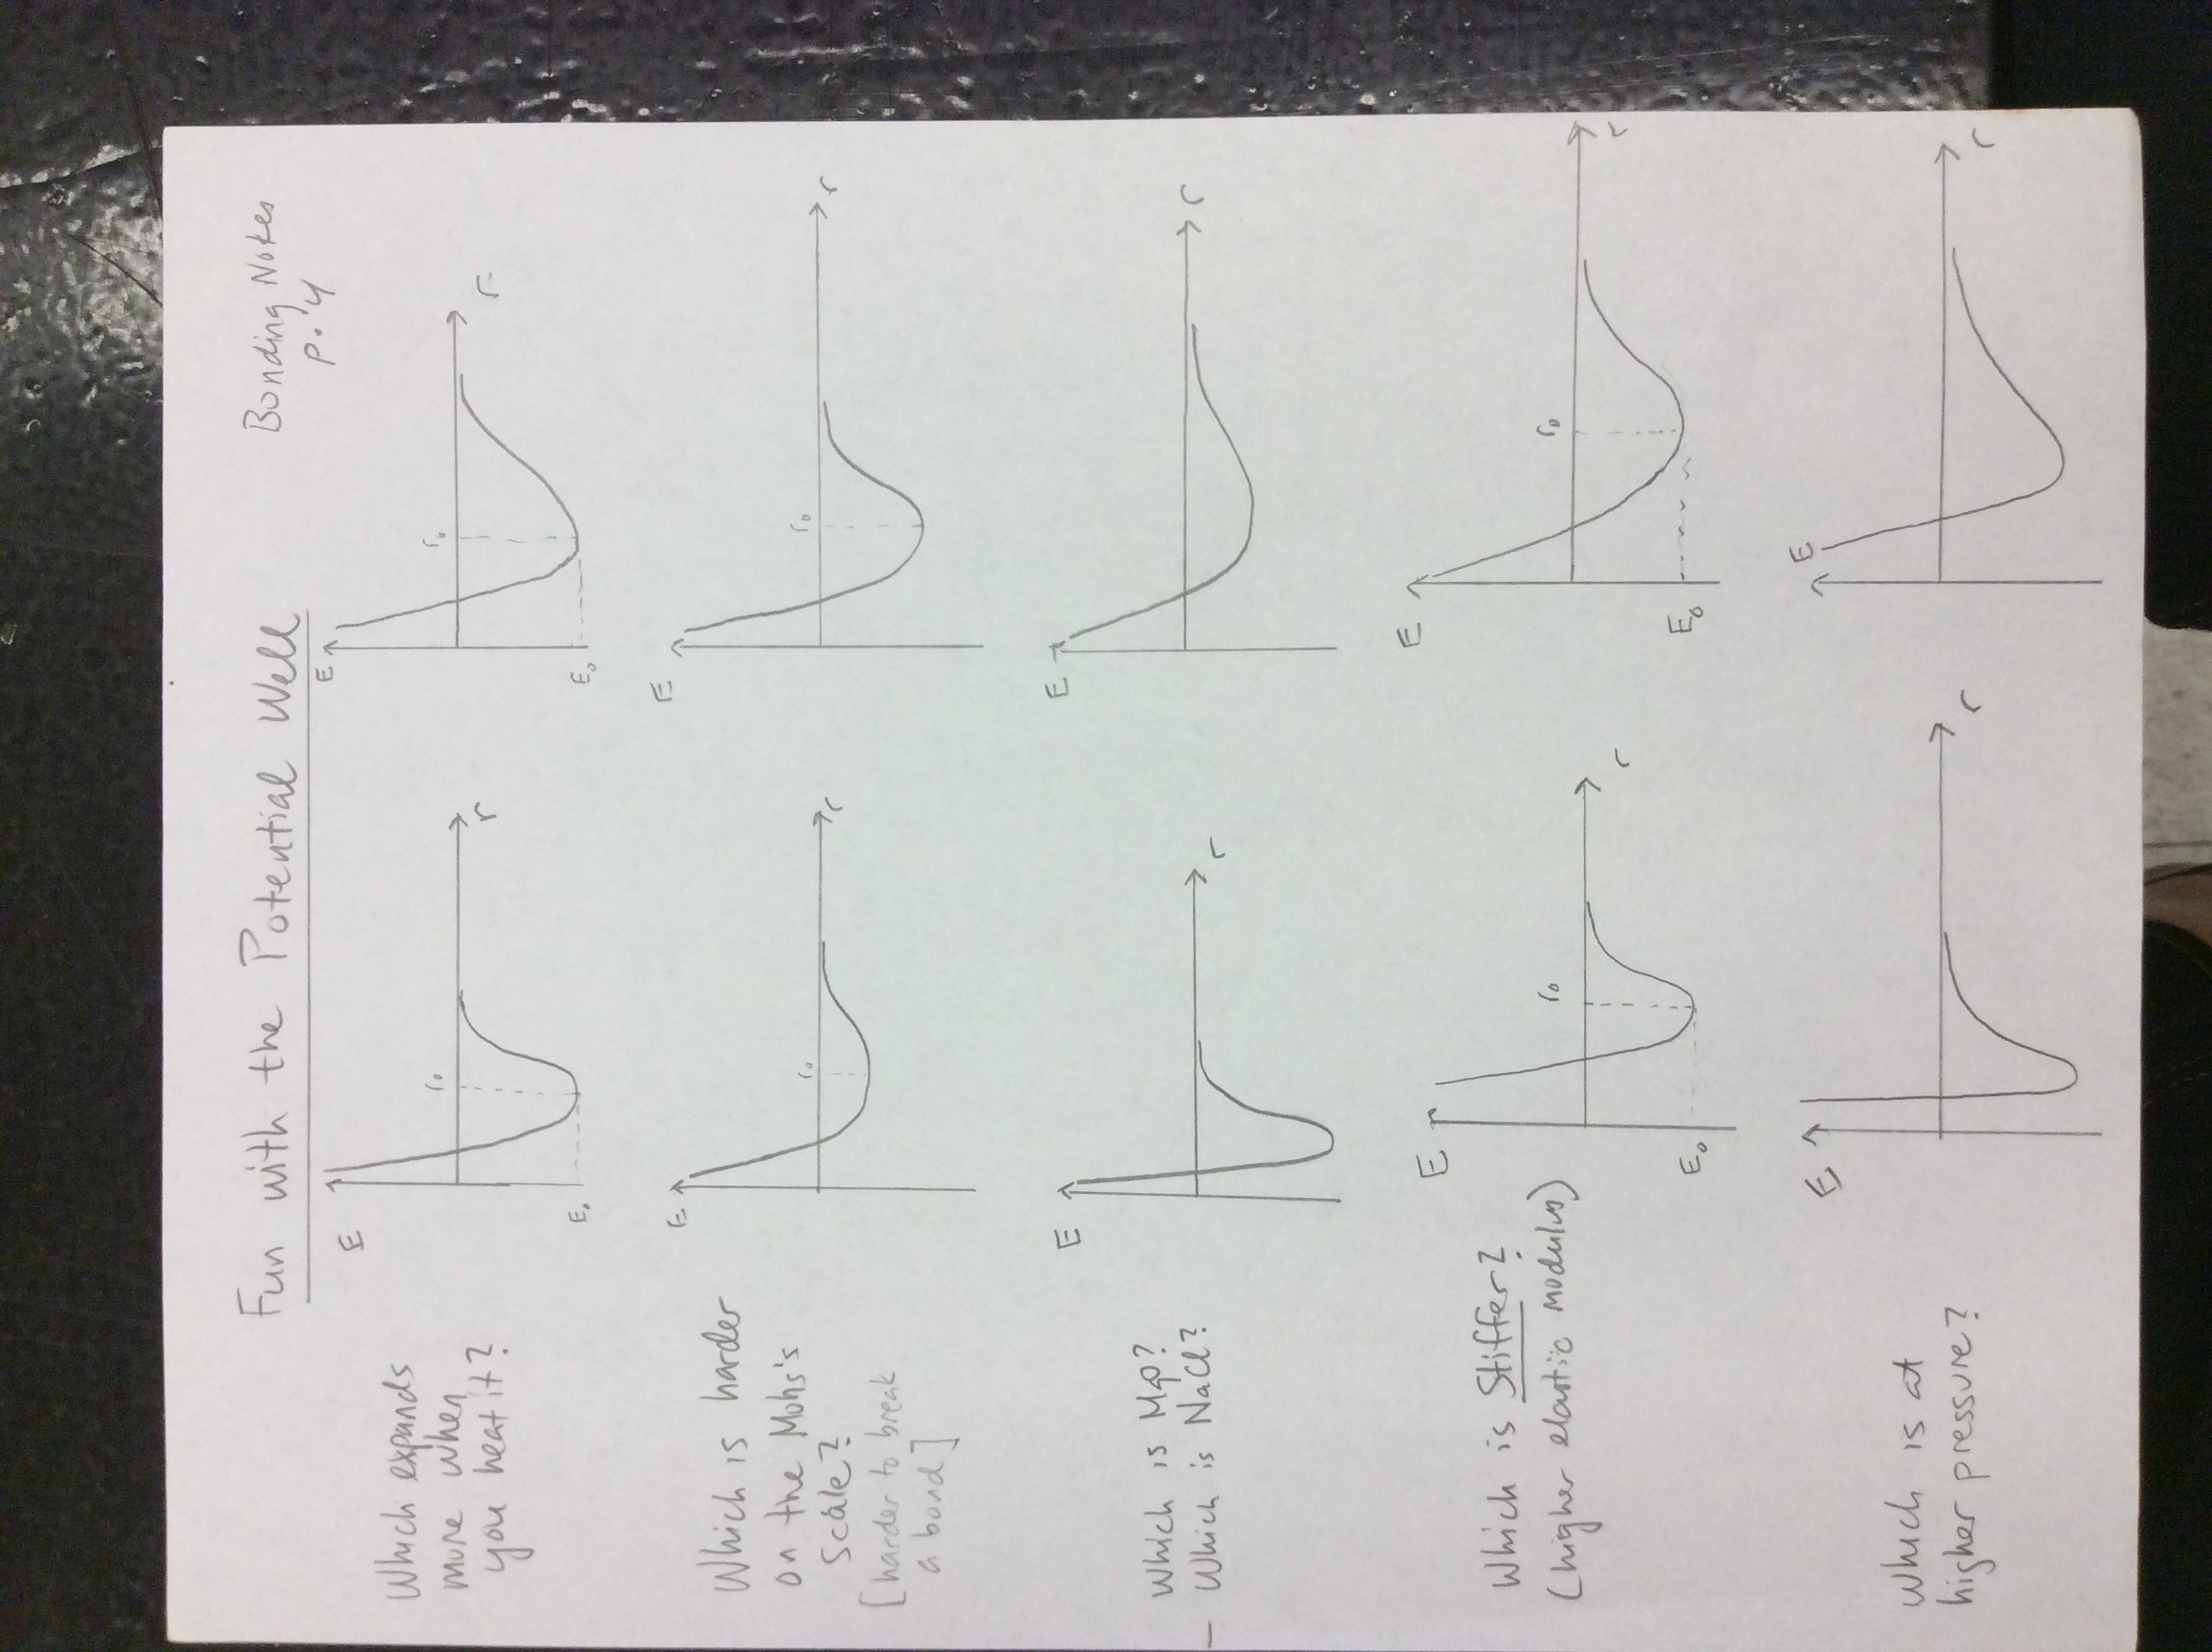 Fun with the Potential Well
Bonding Notes
p. 4
Which expands
more when
you heat it?
E
r₀
r
E₀
E
r₀
r
E₀
Which is harder
on the Mohs's
Scale?
[harder to break
a bond]
E
r₀
r
E
r₀
r
Which is MgO?
Which is NaCl?
E
r
E
r
Which is Stiffer?
(higher elastic modulus)
E
r₀
r
E₀
E
r₀
r
E₀
Which is at
higher pressure?
E
r
E
r